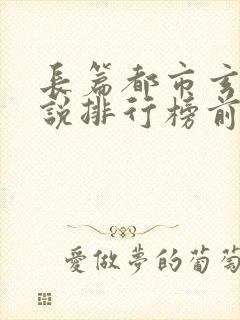 長篇都市玄
說排行榜前
愛做夢的葡萄